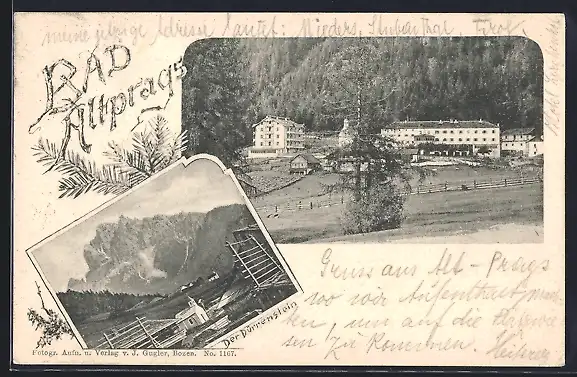 meine jetzige Adresse lautet: Mieders, Stubenthal, Tirol
BAD
Altprags
Der Dürrenstein
Gruss aus Alt-Prags
wo wir Aufenthalt
um auf die
zu kommen.
Fotogr. Aufn. u. Verlag v. J. Gugler, Bozen. No. 1167.